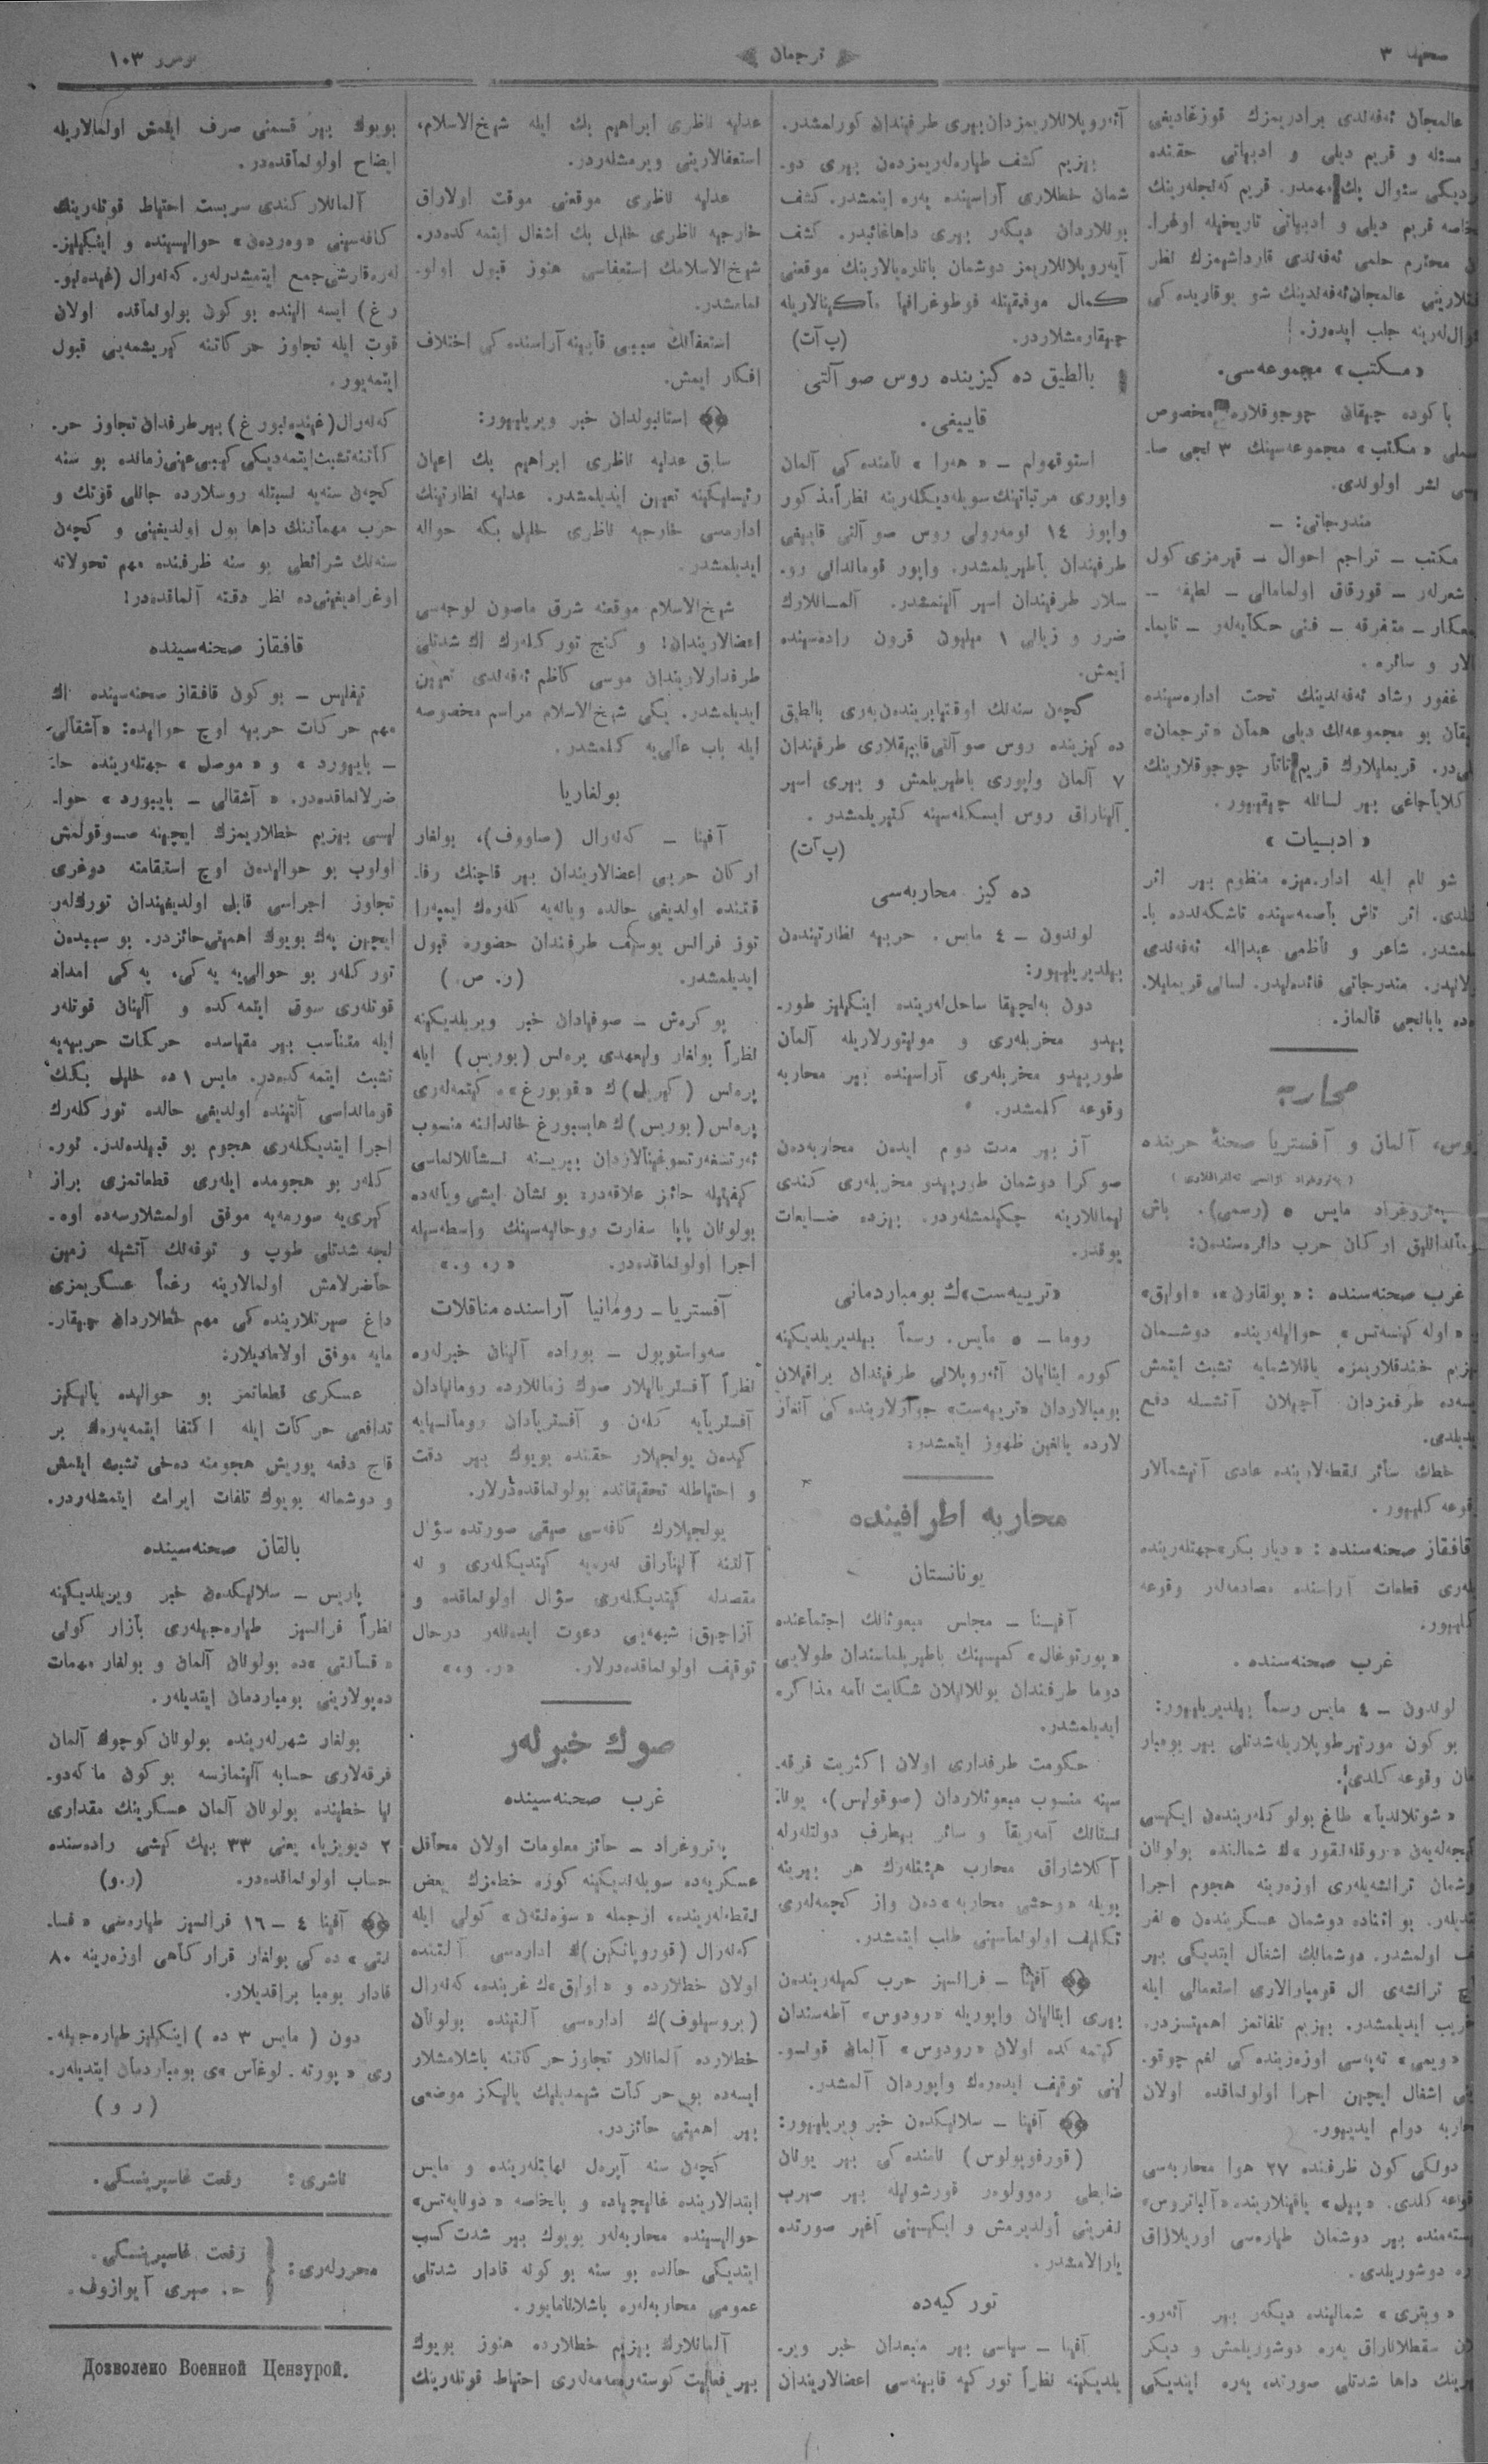 صحیفه ٣
ترجمان
نومرو ١٠٣
عالمجان ئه‌فه‌ندی برادریمزك قوزغادیغی
مسئله و قریم دیلی و ادبیاتی حقنده
قریم كه‌نجله‌رینك
خاصه قریم دیلی و ادبیاتی تاریخیله اوغرا.
محترم حلمی ئه‌فه‌ندی قارداشیمزك نظر
عالمجان ئه‌فه‌ندینك شو یوقاریده كی
جلب ایده‌رز.
«مكتب» مجموعه‌سی.
باكوده چیقان چوجوقلاره مخصوص
«مكتب» مجموعه‌سینك ٣ نجی صا.
نشر اولوندی.
مندرجاتی: —
مكتب — تراجم احوال — قیرمزی كول
شعرله‌ر — قورقاق اولمامالی — لطیفه —
متفرقه — فنی حكایه‌له‌ر — تاپما.
لار و سائره.
غفور رشاد ئه‌فه‌ندینك تحت اداره‌سینده
بو مجموعه‌نك دیلی همان «ترجمان»
قریملیلارك قریم تاتار چوجوقلارینك
آكلایاجاغی بیر لسانله چیقیور.
«ادبیات»
شو نام ایله اداره‌میزه منظوم بیر اثر
كلدی. اثر تاش باصمه‌سینده تاشكه‌ندده با.
صیلمشدر. شاعر و ناظمی عبدالله ئه‌فه‌ندی
مندرجاتی فائده‌لیدر. لسانی قریملیلا.
یابانجی قالماز.
محاربه
روس، آلمان و آفستریا صحنهٔ حربنده
(په‌تروغراد آژانسی ته‌لغرافلاری)
په‌تروغراد مایس ٥ (رسمی). باش
قوماندانلیق اركان حرب دائره‌سندن:
غرب صحنه‌سنده: «بولقارن»، «اولیق»
«اوله كینسه‌تس» حوالیله‌رینده دوشمان
بیزیم خندقلاریمزه یاقلاشمایه تشبث ایتمش
ایسه‌ده طرفمزدان آچیلان آتشله دفع
ایدیلدی.
خطك سائر نقطه‌لارینده عادی آتیشمالار
وقوعه كلیور.
قافقاز صحنه‌سنده: «دیار بكر» جهتله‌رینده
ایله‌ری قطعات آراسنده مصادمه‌له‌ر وقوعه
كلیور.
غرب صحنه‌سنده.
لوندون — ٤ مایس رسماً بیلدیریلیور:
بو كون مورتیرطوپلاریله شدتلی بیر بومبار
دمان وقوعه كلدی.
«شوتلاندیا» طاغ بولوكله‌ریندن ایكیسی
شمالنده بولونان
دوشمان ترانشه‌یله‌ری اوزه‌رینه هجوم اجرا
ایتدیله‌ر. بو اثناده دوشمان عسكریندن ٥ نفر
تلف اولمشدر. دوشمانك اشغال ایتدیكی بیر
ترانشه‌ی ال قومبارالاری استعمالی ایله
تخریب ایدیلمشدر. بیزیم تلفاتمز اهمیتسزدر.
«ویمی» ته‌په‌سی اوزه‌رینده كی لغم چوقو.
اشغال ایچین اجرا اولونماقده اولان
محاربه دوام ایدییور.
دونكی كون ظرفنده ٢٧ هوا محاربه‌سی
وقوعه كلدی.
بیر دوشمان طیاره‌سی
دوشورلدی.
«ویتری» شمالینده دیكه‌ر بیر آئه‌رو.
پلان سقطلاناراق یه‌ره دوشورولمش و دیكر
بیرینك داها شدتلی صورتده یه‌ره ایندیكی
آئه‌روپلانلاریمزدان بیری طرفیندان كورلمشدر.
بیزیم كشف طیاره‌له‌ریمزدن بیری دو.
شمان خطلاری آراسینده یه‌ره اینمشدر. كشف
بونلاردان دیكه‌ر بیری داها غائبدر. كشف
آیه‌روپلانلاریمز دوشمان باتاره‌یالارینك موقعنی
كمال موفقیتله فوطوغرافیا ماكینالاریله
چیقارمشلاردر. (پ آ ت)
بالطیق ده‌كیزینده روس صو آلتی
قاییغی.
استوقهولم — «هه‌را» نامنده كی آلمان
واپوری مرتباتینك سویله‌دیكله‌رینه نظراً مذكور
واپور ١٤ نومه‌رولی روس صو آلتی قاییغی
طرفیندان باطیریلمشدر. واپور قوماندانی رو.
سلار طرفیندان اسیر آلینمشدر. آلمانلارك
ضرر و زیانی ١ میلیون قرون راده‌سینده
ایمش.
كچه‌ن سنه‌نك اوقتیابریندن‌به‌ری بالطیق
ده‌كیزینده روس صو آلتی قاییقلاری طرفیندان
٧ آلمان واپوری باطیریلمش و بیری اسیر
آلیناراق روس ایسكله‌سینه كتیریلمشدر.
(پ آ ت)
ده‌كیز محاربه‌سی
لوندون — ٤ مایس. حربیه نظارتیندن
بیلدیریلیور:
دون به‌لجیقا ساحل‌له‌رینده اینكیلیز طور.
پیدو مخربله‌ری و مونیتورلاریله آلمان
طورپیدو مخربله‌ری آراسینده بیر محاربه
وقوعه كلمشدر.
آز بیر مدت دوام ایدن محاربه‌دن
صوكرا دوشمان طورپیدو مخربله‌ری كندی
لیمانلارینه چكیلمشله‌ردر. بیزده ضایعات
یوقدر.
«ترییه‌ست»ك بومباردمانی
روما — ٥ مایس. رسماً بیلدیریلدیكینه
كوره ایتالیان آئه‌روپلانی طرفیندان براقیلان
بومبالاردان «ترییه‌ست» جوارلارینده كی آنغار
لارده یانغین ظهور ایتمشدر.
محاربه اطرافینده
یونانستان
آفینا — مجلس مبعوثانك اجتماعنده
«پورتوغال» كمیسینك باطیریلماسندان طولایی
دوما طرفندان یوللانیلان شكایت نامه مذاكره
ایدیلمشدر.
حكومت طرفداری اولان اكثریت فرقه.
سینه منسوب مبعوثلاردان (صوقولیس)، یونا.
نستانك آمه‌ریقا و سائر بیطرف دولتله‌رله
آكلاشاراق محارب هیئتله‌رك هر بیرینه
بویله «وحشی محاربه»دن واز كچمه‌له‌ری
تكلیف اولونماسینی طلب ایتمشدر.
آفینا — فرانسیز حرب كمیله‌ریندن
بیری ایتالیان واپوریله «رودوس» آطه‌سندان
كیتمه‌كده اولان «رودوس» آلمان قونسو.
لینی توقیف ایده‌رك واپوردان آلمشدر.
آفینا — سلانیكدن خبر ویریلیور:
(قورفوپولوس) نامنده كی بیر یونان
ضابطی ره‌وولوه‌ر قورشونیله بیر صیرب
نفرینی أولدیرمش و ایكیسینی آغیر صورتده
یارالامشدر.
توركیه‌ده
آفینا — سیاسی بیر منبعدان خبر ویر.
یلدیكینه نظراً توركیه قابینه‌سی اعضالاریندان
عدلیه ناظری ابراهیم بك ایله شیخ‌الاسلام،
استعفالارینی ویرمشله‌ردر.
عدلیه ناظری موقعنی موقت اولاراق
خارجیه ناظری خلیل بك اشغال ایتمه‌كده‌در.
شیخ‌الاسلامك استعفاسی هنوز قبول اولو.
نمامشدر.
استعفانك سببی قابینه آراسنده كی اختلاف
افكار ایمش.
استانبولدان خبر ویریلیور:
سابق عدلیه ناظری ابراهیم بك اعیان
رئیسلیكینه تعیین ایدیلمشدر. عدلیه نظارتینك
اداره‌سی خارجیه ناظری خلیل بكه حواله
ایدیلمشدر.
شیخ‌الاسلام موقعنه شرق ماصون لوجه‌سی
اعضالاریندان! و كنج توركله‌رك اك شدتلی
طرفدارلاریندان موسی كاظم ئه‌فه‌ندی تعیین
ایدیلمشدر. یكی شیخ‌الاسلام مراسم مخصوصه
ایله باب عالی‌یه كلمشدر.
بولغاریا
آفینا — كه‌نه‌رال (صاووف)، بولغار
اركان حربی اعضالاریندان بیر قاچنك رفا.
قتنده اولدیغی حالده ویانه‌یه كله‌رك ایمپه‌را
تور فرانس یوسف طرفیندان حضوره قبول
ایدیلمشدر. (ر. ص.)
بوكره‌ش — صوفیادان خبر ویریلدیكینه
نظراً بولغار ولیعهدی پره‌نس (بوریس) ایله
پره‌نس (كیریل)ك «قوبورغ»ه كیتمه‌له‌ری
پره‌نس (بوریس)ك هابسبورغ خاندانینه منسوب
بیرینه نشانلانماسی
كیفیتیله حائز علاقه‌در. بو نشان ایشی ویانه‌ده
بولونان پاپا سفارت روحانیه‌سینك واسطه‌سیله
اجرا اولونماقده‌در. «ر. و.»
آفستریا — رومانیا آراسنده مناقلات
سه‌واستوپول — بوراده آلینان خبرله‌ره
نظراً آفستریالیلار صوك زمانلارده رومانیادان
آفستریایه كلن و آفستریادان رومانیایه
كیدن یولجیلار حقنده بویوك بیر دقت
و احتیاطله تحقیقاتده بولونماقده‌درلار.
یولجیلارك كافه‌سی صیقی صورتده سؤال
آلتنه آلیناراق نه‌ره‌یه كیتدیكله‌ری و نه
مقصدله كیتدیكله‌ری سؤال اولونماقده و
آزاچیق شبهه‌یی دعوت ایدنله‌ر درحال
توقیف اولونماقده‌درلار. «ر. و.»
صوك خبرله‌ر
غرب صحنه‌سینده
په‌تروغراد — حائز معلومات اولان محافل
عسكریه‌ده سویله‌ندیكینه كوره خطمزك بعض
نقطه‌له‌رینده، ازجمله «سوه‌نتن» كولی ایله
كه‌نه‌رال (قوروپاتكین)ك اداره‌سی آلتنده
اولان خطلارده و «اولیق»ك غربنده، كه‌نه‌رال
(بروسیلوف)ك اداره‌سی آلتینده بولونان
خطلارده آلمانلار تجاوز حركاتنه باشلامشلار
ایسه‌ده بو حركات شیمدیلیك یالیكز موضعی
بیر اهمیتی حائزدر.
كچه‌ن سنه آپره‌ل نهایتله‌رینده و مایس
ابتدالارینده غالیچیاده و بالخاصه «دونایه‌تس»
حوالیسینده محاربه‌له‌ر بویوك بیر شدت كسب
ایتدیكی حالده بو سنه بو كونه قادار شدتلی
عمومی محاربه‌له‌ره باشلانامایور.
آلمانلارك بیزیم خطلارده هنوز بویوك
بیر فعالیت كوسته‌رمه‌مه‌له‌ری احتیاط قوتله‌رینك
بویوك بیر قسمنی صرف ایتمش اولمالاریله
ایضاح اولونماقده‌در.
آلمانلار كندی سربست احتیاط قوتله‌رینك
كافه‌سینی «وه‌ردن» حوالیسینده و اینكیلیز.
له‌ره قارشی جمع ایتمشدرله‌ر. كه‌نه‌رال (غیندنبو.
رغ) ایسه الینده بو كون بولونماقده اولان
قوت ایله تجاوز حركاتنه كیریشمه‌یی قبول
ایتمه‌یور.
كه‌نه‌رال (غیندنبورغ) بیر طرفدان تجاوز حر.
كاتنه تشبث ایتمه‌دیكی كیبی عینی زمانده بو سنه
كچه‌ن سنه‌یه نسبتله روسلارده جانلی قوتك و
حرب مهماتنك داها بول اولدیغینی و كچه‌ن
سنه‌نك شرائطی بو سنه ظرفنده مهم تحولاته
اوغرادیغینی‌ده نظر دقته آلماقده‌در!
قافقاز صحنه‌سینده
تیفلیس — بو كون قافقاز صحنه‌سینده اك
مهم حركات حربیه اوچ حوالیده: «آشقالی.
— بایبورد» و «موصل» جهتله‌رینده حا.
ضرلانماقده‌در. «آشقالی — بایبورد» حوا.
لیسی بیزیم خطلاریمزك ایچینه صوقولمش
اولوب بو حوالیدن اوچ استقامته دوغری
تجاوز اجراسی قابل اولدیغیندان تورك‌له‌ر
ایچین پك بویوك اهمیتی حائزدر. بو سببدن
توركله‌ر بو حوالی‌یه یه‌كی، یه‌كی امداد
قوتله‌ری سوق ایتمه‌كده و آلینان قوتله‌ر
ایله متناسب بیر مقیاسده حركات حربیه‌یه
تشبث ایتمه‌كده‌در. مایس ١ ده خلیل بكك
قومانداسی آلتینده اولدیغی حالده توركله‌رك
اجرا ایتدیكله‌ری هجوم بو قبیلده‌ندر. تور.
كله‌ر بو هجومده ایله‌ری قطعاتمزی براز
كیری‌یه سورمه‌یه موفق اولمشلارسه‌ده اوه.
لجه شدتلی طوپ و توفه‌نك آتشیله زمین
حاضرلامش اولمالارینه رغماً عسكریمزی
داغ صیرتلارینده كی مهم خطلاردان چیقار.
مایه موفق اولامادیلار.
عسكری قطعاتمز بو حوالیده یالیكیز
تدافعی حركات ایله اكتفا ایتمه‌یه‌رك بر
قاچ دفعه یوریش هجومنه ده‌خی تشبث ایتمش
و دوشمانه بویوك تلفات ایراث ایتمشله‌ردر.
بالقان صحنه‌سینده
پاریس — سلانیكدن خبر ویریلدیكینه
نظراً فرانسیز طیاره‌جیله‌ری بازار كونی
«قسانتی»ده بولونان آلمان و بولغار مهمات
ده‌پولارینی بومباردمان ایتدیله‌ر.
بولغار شهرله‌رینده بولونان كوچوك آلمان
فرقه‌لاری حسابه آلینمازسه بو كون ماكه‌دو.
نیا خطینده بولونان آلمان عسكرینك مقداری
٢ دیویزیا، یعنی ٣٣ بیك كیشی راده‌سنده
حساب اولونماقده‌در. (ر.و)
آفینا ٤ — ١٦ فرانسیز طیاره‌سی «قسا.
نتی»ده كی بولغار قرار كاهی اوزه‌رینه ٨٠
قادار بومبا براقدیلار.
دون (مایس ٣ ده) اینكیلیز طیاره‌جیله.
ری «پورته. لوغاس»ی بومباردمان ایتدیله‌ر.
(ر و)
ناشری: رفعت غاسپرینسكی.
محررله‌ری: رفعت غاسپرینسكی.
ح. صبری آیوازوف.
Дозволено Военной Цензурой.